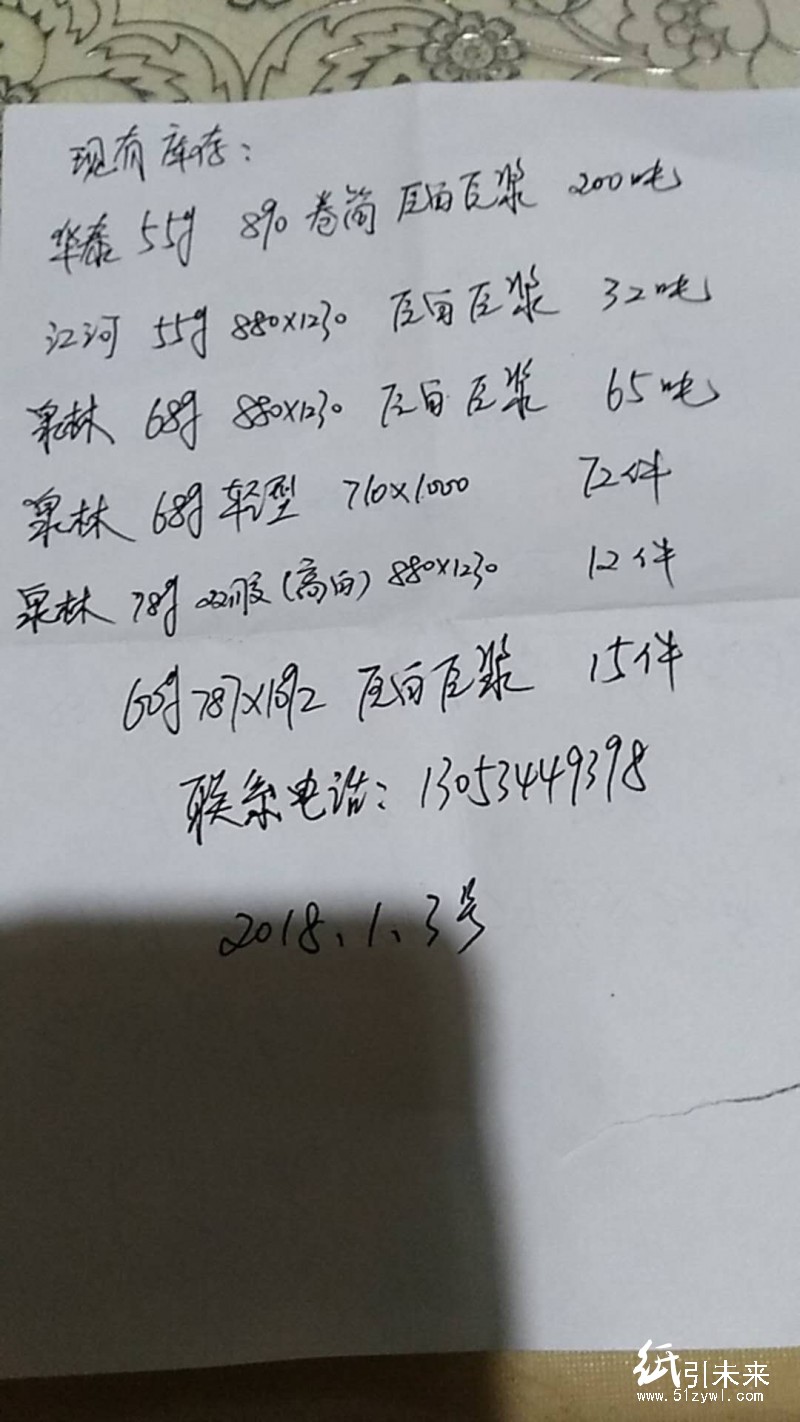 现有库存：
华泰 55g 890 卷筒 巨白巨浆 200吨
江河 55g 880×1230 巨白巨浆 32吨
泉林 68g 880×1230 巨白巨浆 65吨
泉林 68g 轻型 710×1000 72件
泉林 78g 双胶（高白）880×1230 12件
60g 787×1092 巨白巨浆 15件
联系电话：13053449398
2018、1、3号
纸引未来
www.51zywl.com